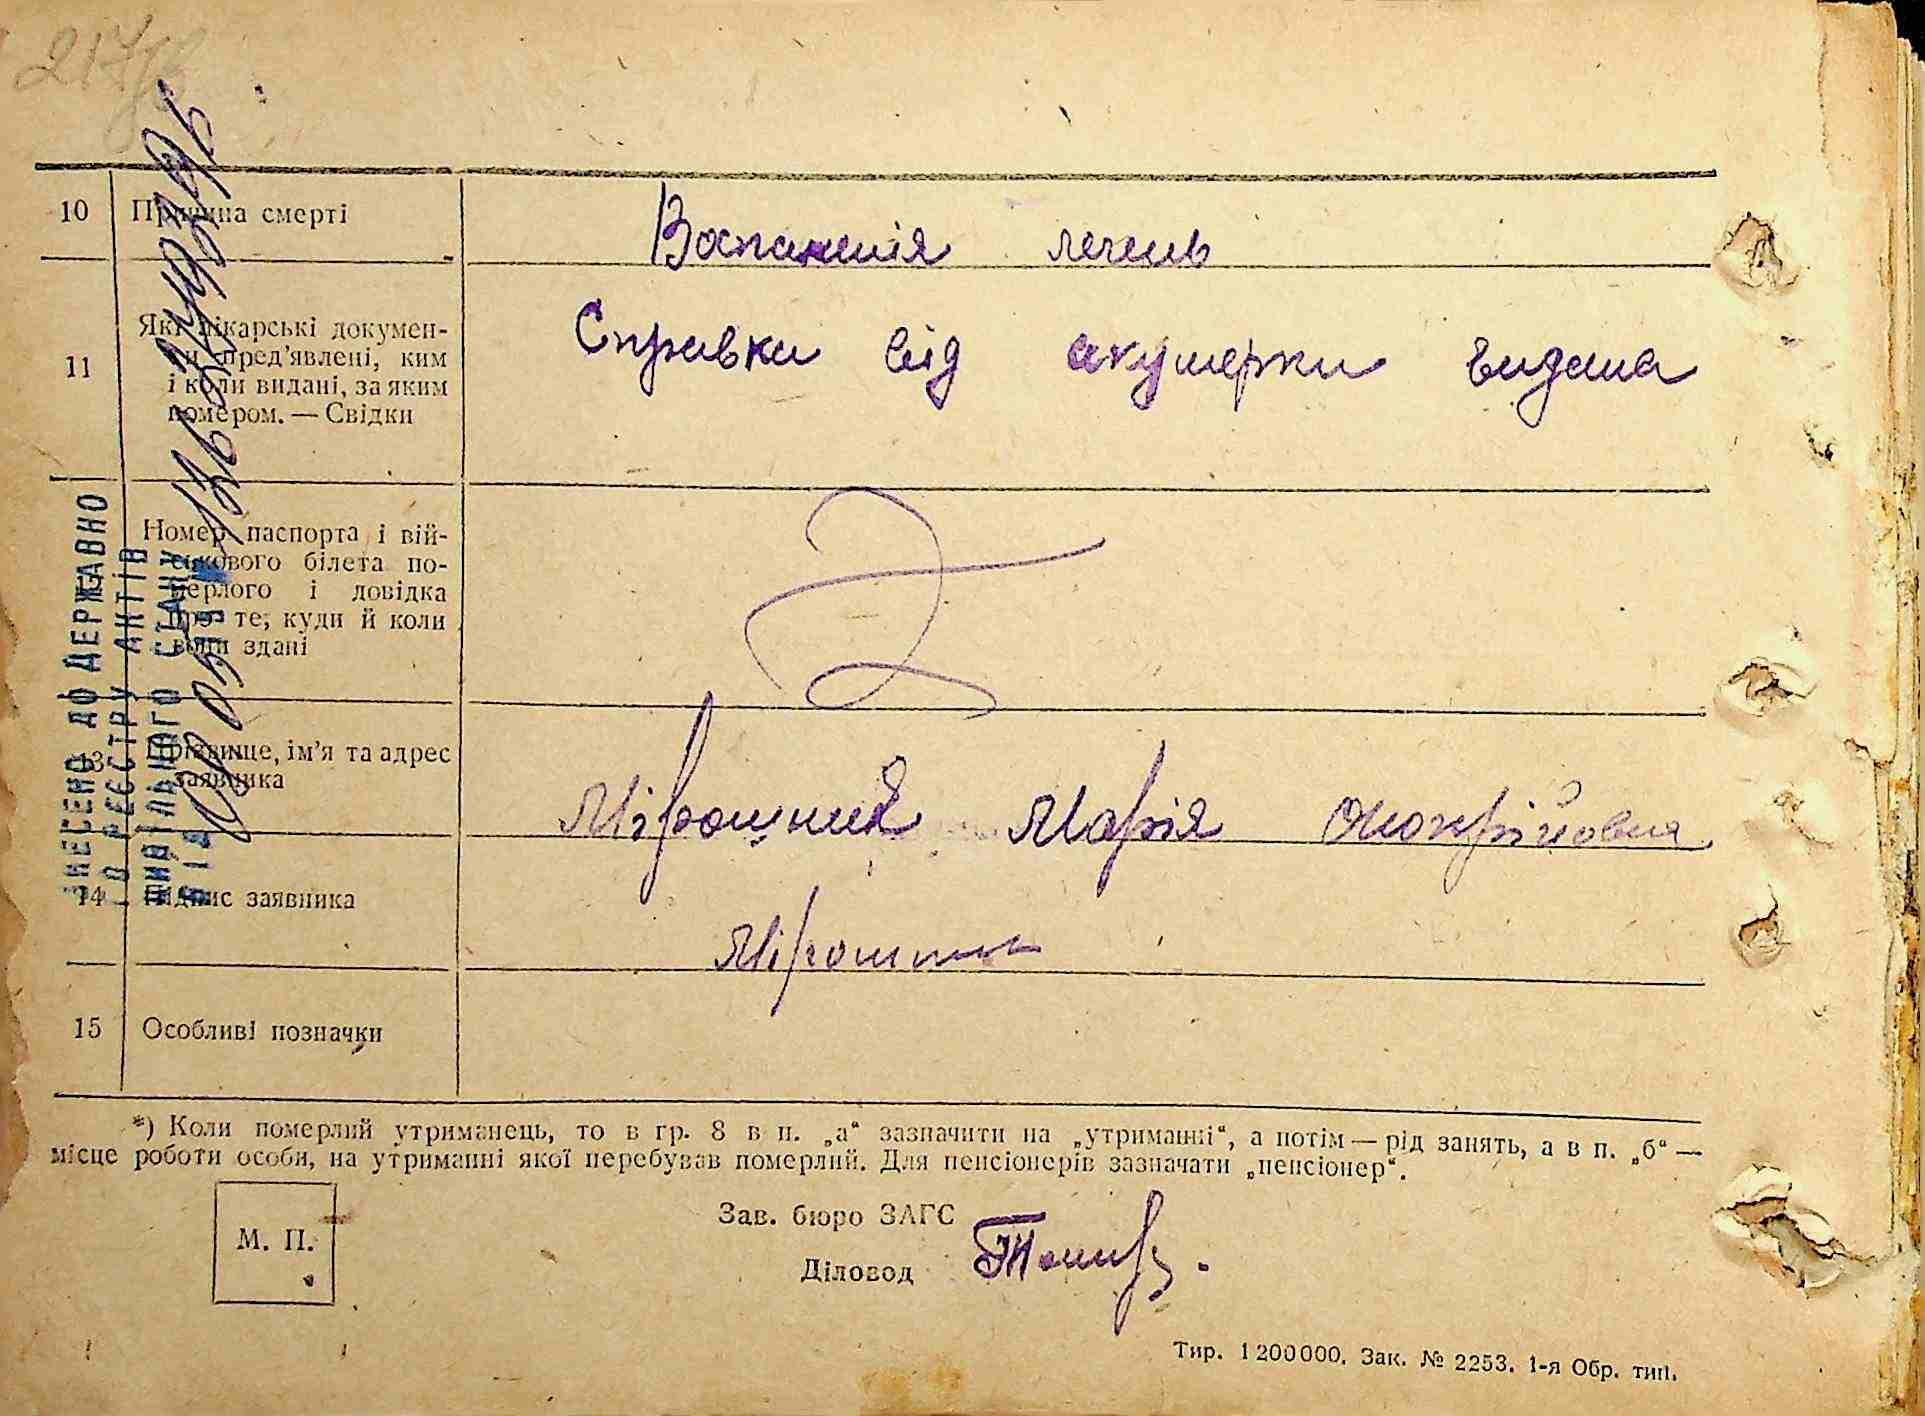 217
10 Причина смерті Воспаленія лечень
11 Які лікарські докумен-
ти пред'явлені, ким
і коли видані, за яким
номером. — Свідки
Справка від акушерки видана
Номер паспорта і вій-
ськового білета по-
мерлого і довідка
про те, куди й коли
вони здані
13 Прізвище, ім'я та адрес
заявника
Мірошник Марія
14 Підпис заявника
Мірошник
15 Особливі позначки
*) Коли померлий утриманець, то в гр. 8 в п. „а“ зазначити на „утриманні“, а потім — рід занять, а в п. „б“ —
місце роботи особи, на утриманні якої перебував померлий. Для пенсіонерів зазначати „пенсіонер“.
М. П.
Зав. бюро ЗАГС
Діловод
Тир. 1200000. Зак. № 2253. 1-я Обр. тип.
ВНЕСЕНО ДО ДЕРЖАВНО
ГО РЕЄСТРУ АКТІВ
ЦИВІЛЬНОГО СТАНУ
ВІД